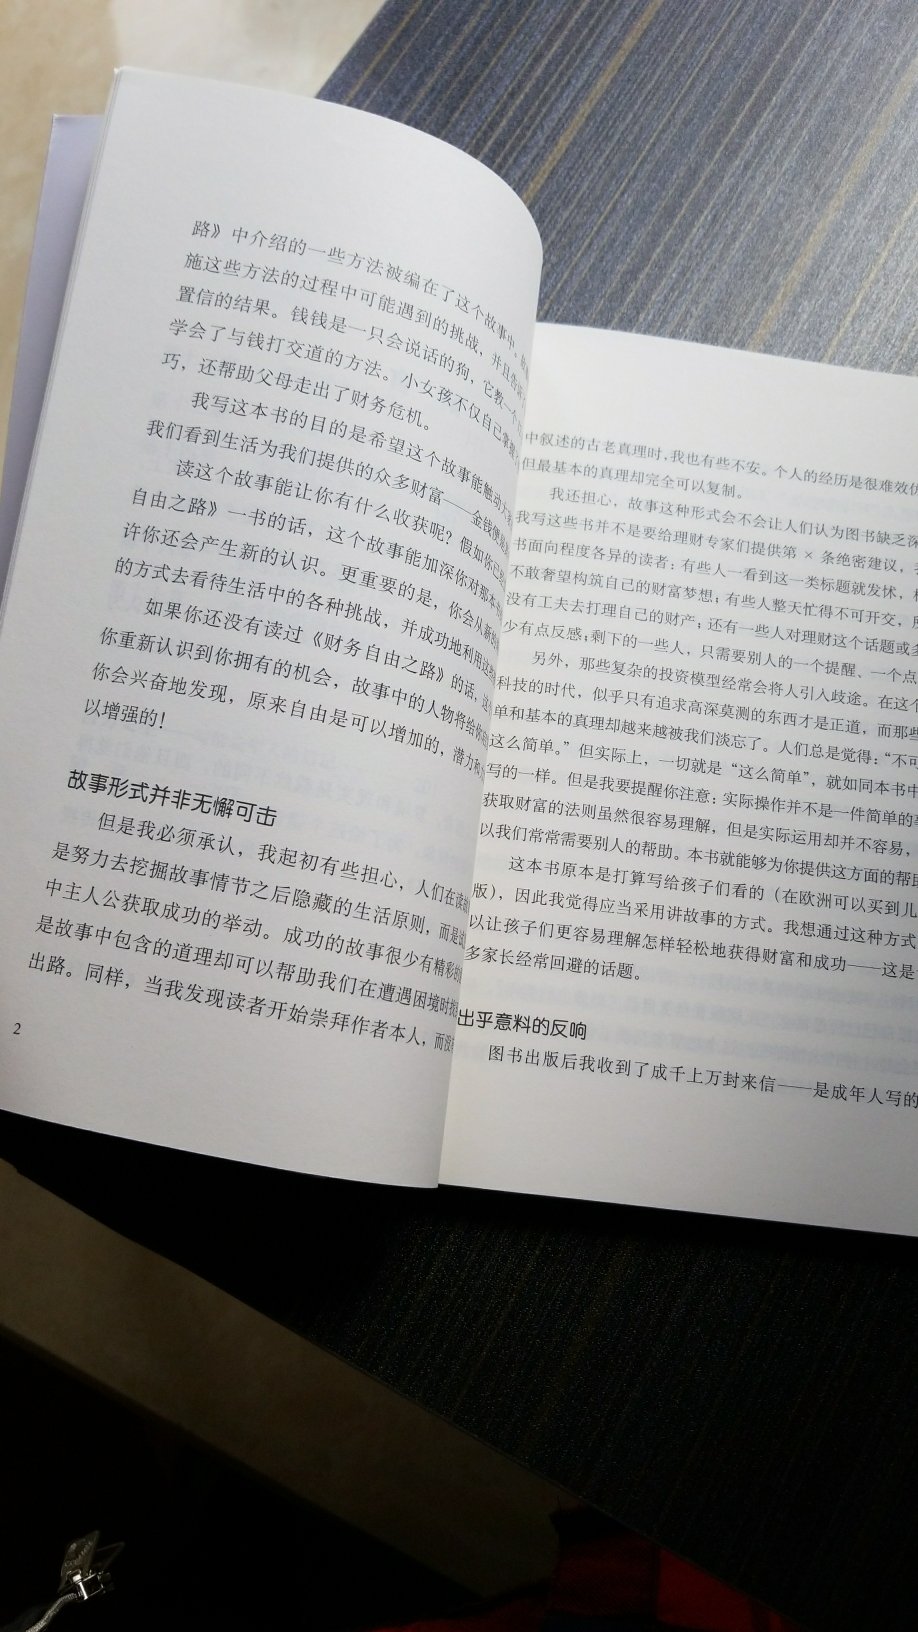 路》中介绍的一些方法被编在了这个故事中。
施这些方法的过程中可能遇到的挑战，并且告诉
置信的结果。钱钱是一只会说话的狗，它教一个
学会了与钱打交道的方法。小女孩不仅自己掌握
巧，还帮助父母走出了财务危机。
我写这本书的目的是希望这个故事能触动
我们看到生活为我们提供的众多财富——金钱便是
读这个故事能让你有什么收获呢？假如你已
自由之路》一书的话，这个故事能加深你对那本
许你还会产生新的认识。更重要的是，你会从新的
的方式去看待生活中的各种挑战，并成功地利用这
如果你还没有读过《财务自由之路》的话，这
你重新认识到你拥有的机会，故事中的人物将给你
你会兴奋地发现，原来自由是可以增加的，潜力和
以增强的！
故事形式并非无懈可击
但是我必须承认，我起初有些担心，人们在读
是努力去挖掘故事情节之后隐藏的生活原则，而是
中主人公获取成功的举动。成功的故事很少有精彩的
是故事中包含的道理却可以帮助我们在遭遇困境时找
出路。同样，当我发现读者开始崇拜作者本人，而没
2
中叙述的古老真理时，我也有些不安。个人的经历是很难效仿
但最基本的真理却完全可以复制。
我还担心，故事这种形式会不会让人们认为图书缺乏深
我写这些书并不是要给理财专家们提供第×条绝密建议，
书面向程度各异的读者：有些人一看到这一类标题就发怵，
不敢奢望构筑自己的财富梦想；有些人整天忙得不可开交，
没有工夫去打理自己的财产；还有一些人对理财这个话题或多
少有点反感；剩下的一些人，只需要别人的一个提醒、一个点
另外，那些复杂的投资模型经常会将人引入歧途。在这个
科技的时代，似乎只有追求高深莫测的东西才是正道，而那些
单和基本的真理却越来越被我们淡忘了。人们总是觉得：“不可
这么简单。”但实际上，一切就是“这么简单”，就如同本书中
写的一样。但是我要提醒你注意：实际操作并不是一件简单的事
获取财富的法则虽然很容易理解，但是实际运用却并不容易，
以我们常常需要别人的帮助。本书就能够为你提供这方面的帮助
这本书原本是打算写给孩子们看的（在欧洲可以买到儿
版），因此我觉得应当采用讲故事的方式。我想通过这种方式
以让孩子们更容易理解怎样轻松地获得财富和成功——这是
多家长经常回避的话题。
出乎意料的反响
图书出版后我收到了成千上万封来信——是成年人写的